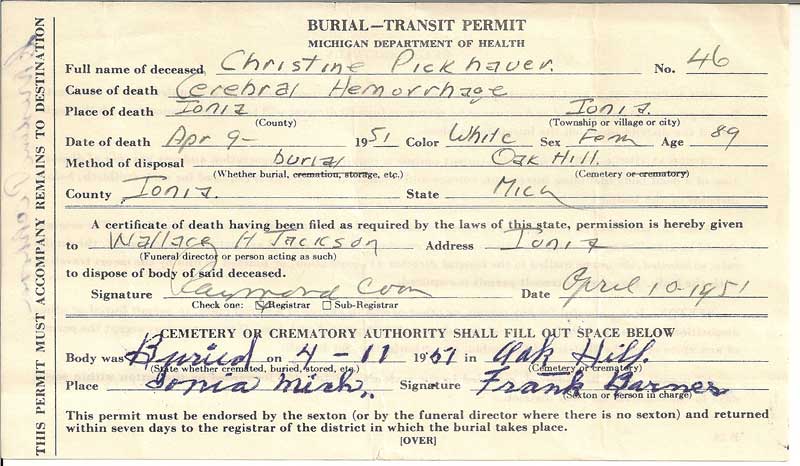 BURIAL—TRANSIT PERMIT
MICHIGAN DEPARTMENT OF HEALTH
Full name of deceased Christine Pickhaver. No. 46
Cause of death Cerebral Hemorrhage
Place of death Ionia Ionia.
(County) (Township or village or city)
Date of death Apr 9- 1951 Color White Sex Fem Age 89
Method of disposal burial Oak Hill.
(Whether burial, cremation, storage, etc.) (Cemetery or crematory)
County Ionia. State Mich
A certificate of death having been filed as required by the laws of this state, permission is hereby given
to Wallace H Jackson Address Ionia
(Funeral director or person acting as such)
to dispose of body of said deceased.
Signature Raymond Date April 10-1951
Check one: Registrar Sub-Registrar
CEMETERY OR CREMATORY AUTHORITY SHALL FILL OUT SPACE BELOW
Body was Buried on 4-11 1951 in Oak Hill.
(State whether cremated, buried, stored, etc.) (Cemetery or crematory)
Place Ionia Mich. Signature Frank Barnes
(Sexton or person in charge)
This permit must be endorsed by the sexton (or by the funeral director where there is no sexton) and returned
within seven days to the registrar of the district in which the burial takes place.
[OVER]
THIS PERMIT MUST ACCOMPANY REMAINS TO DESTINATION